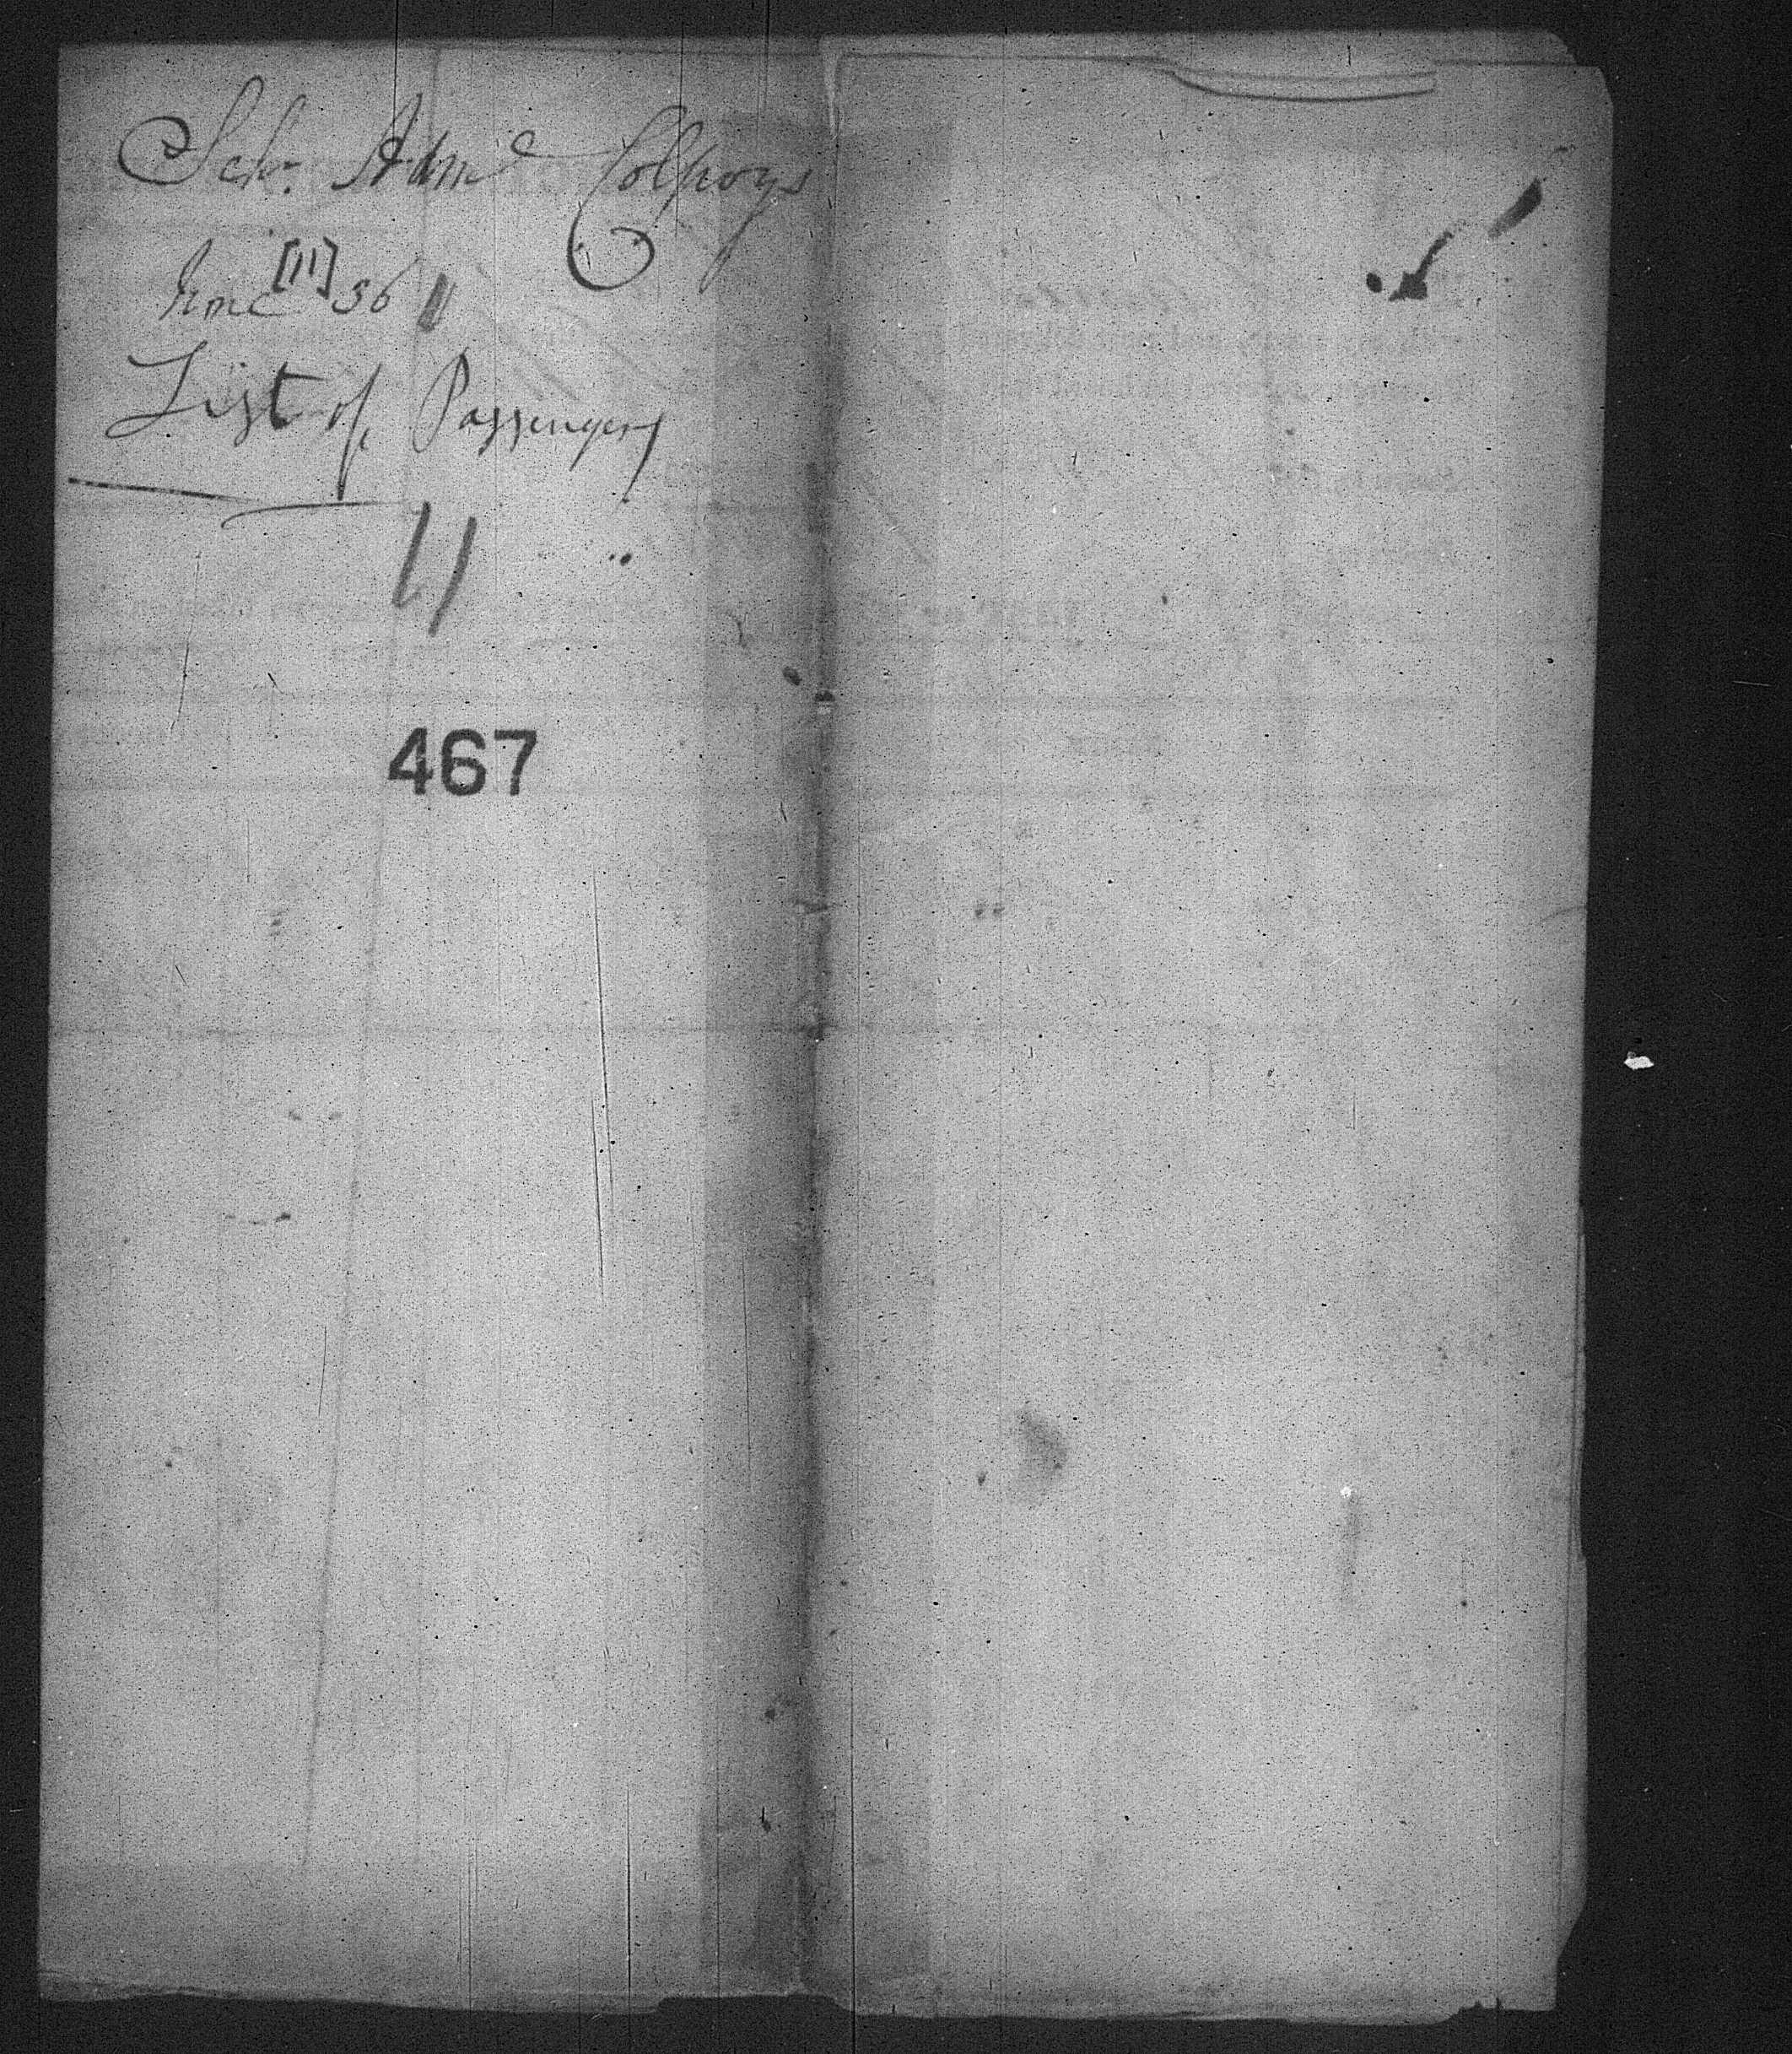 Schr. Adml Colpoys
June [11] 36
List of Passengers
11
467